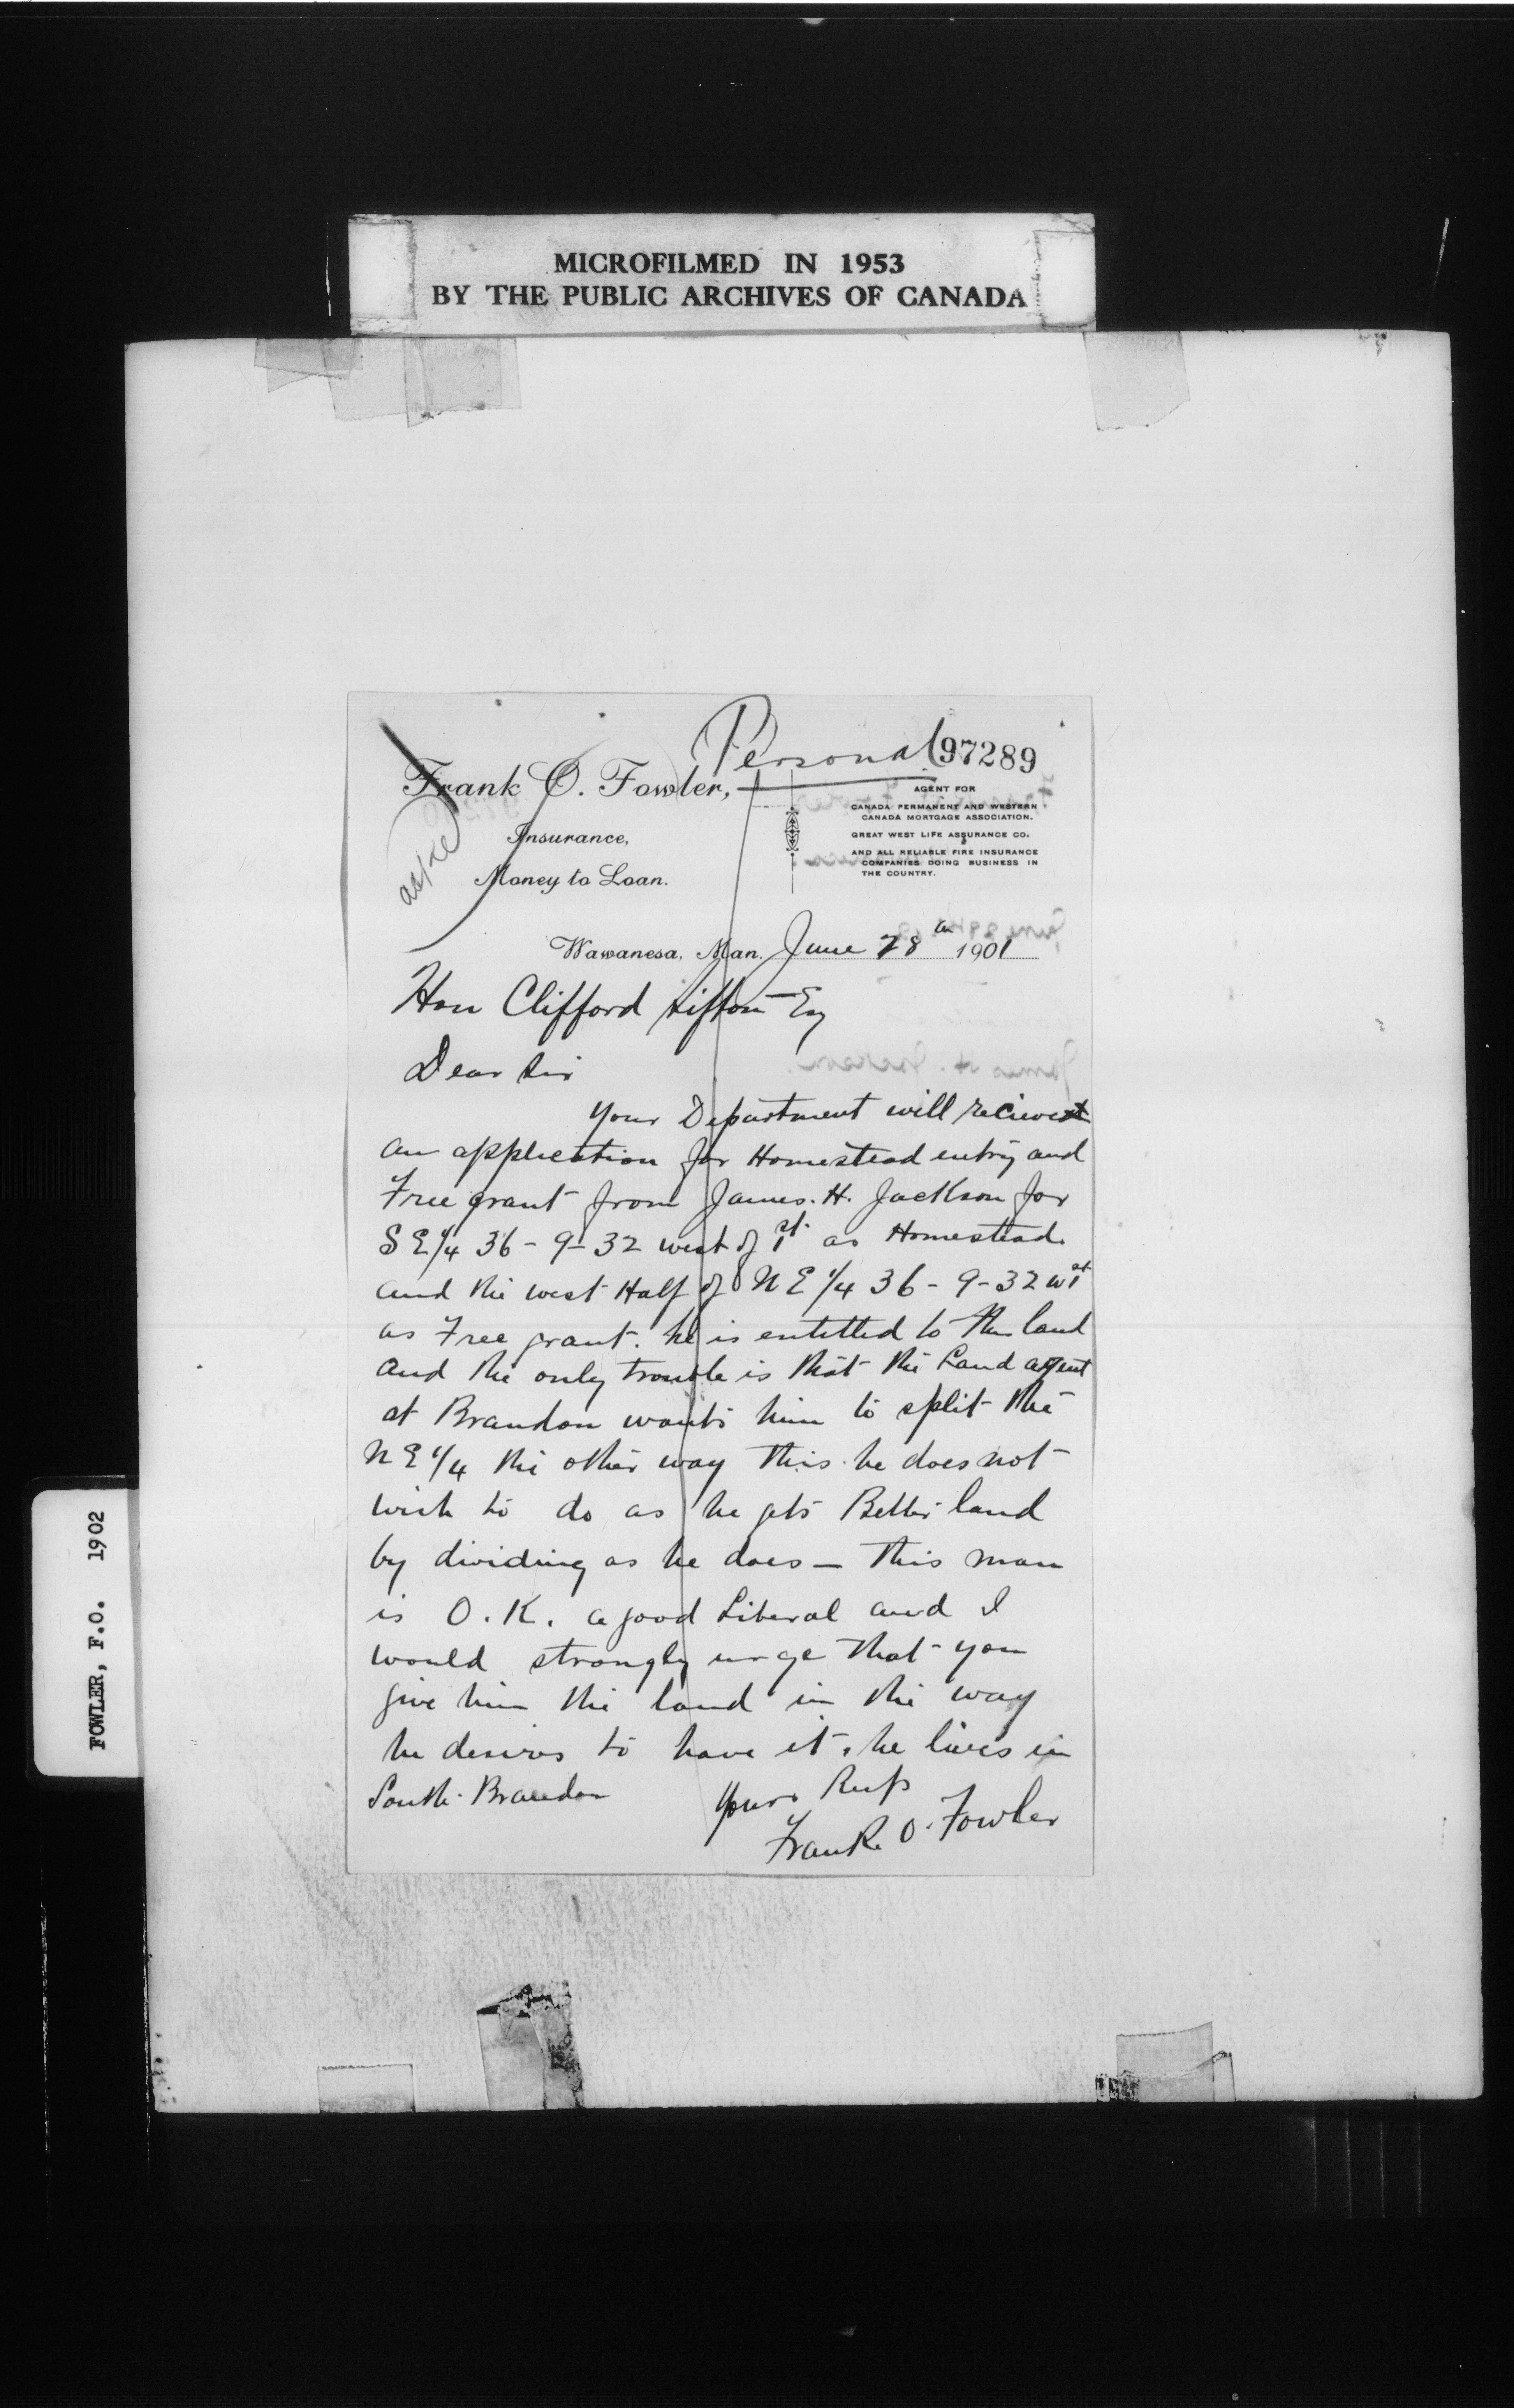 MICROFILMED IN 1953
BY THE PUBLIC ARCHIVES OF CANADA
Personal
97289
Frank O. Fowler,
Insurance,
Money to Loan.
AGENT FOR
CANADA PERMANENT AND WESTERN
CANADA MORTGAGE ASSOCIATION.
GREAT WEST LIFE ASSURANCE CO.
AND ALL RELIABLE FIRE INSURANCE
COMPANIES DOING BUSINESS IN
THE COUNTRY.
Wawanesa, Man. June 28 1901
Hon Clifford Sifton Esq
Dear Sir
Your Department will recieve
an application for Homestead entry and
Free grant from James. H. Jackson for
S E 1/4 36 - 9 - 32 west of 1st as Homestead
and the west Half of N E 1/4 36 - 9 - 32 w 1st
as Free grant. he is entitled to the land
and the only trouble is that the Land agent
at Brandon wants him to split the
N E 1/4 the other way this he does not
wish to do as he gets Better land
by dividing as he does — This man
is O.K. a good Liberal and I
would strongly urge that you
give him the land in the way
he desires to have it. he lives in
South Brandon
Yours Resp
Frank O. Fowler
FOWLER, F.O. 1902